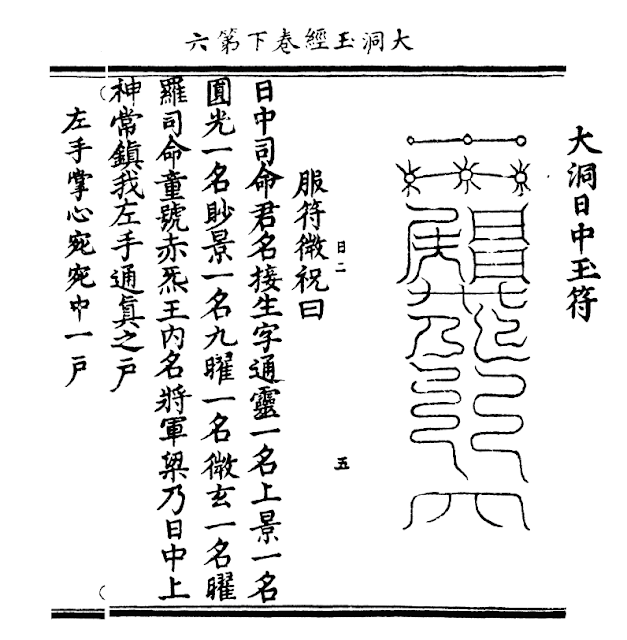 大洞玉經卷下第六
大洞日中玉符
日二
五
服符微祝曰
日中司命君名接生字通靈一名上景一名
圓光一名眇景一名九曜一名微玄一名曜
羅司命童號赤炁王内名將軍梁乃日中上
神常鎮我左手通眞之戸
左手掌心宛宛中一戸